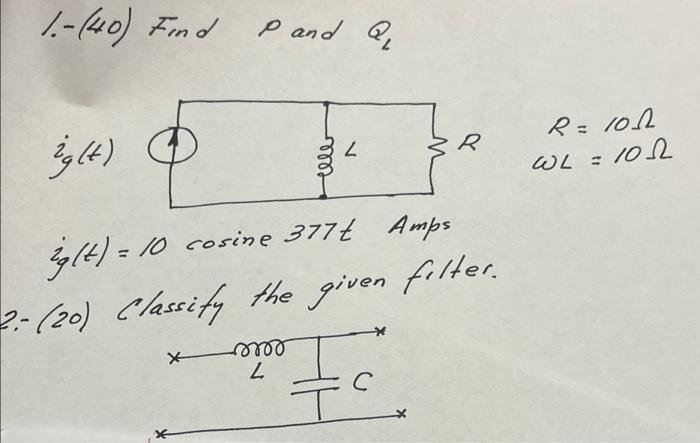 1.-(40) Find P and Q_L
i_g(t)
L
R
R = 10Ω
ωL = 10Ω
i_g(t) = 10 cosine 377t Amps
2.-(20) Classify the given filter.
L
C